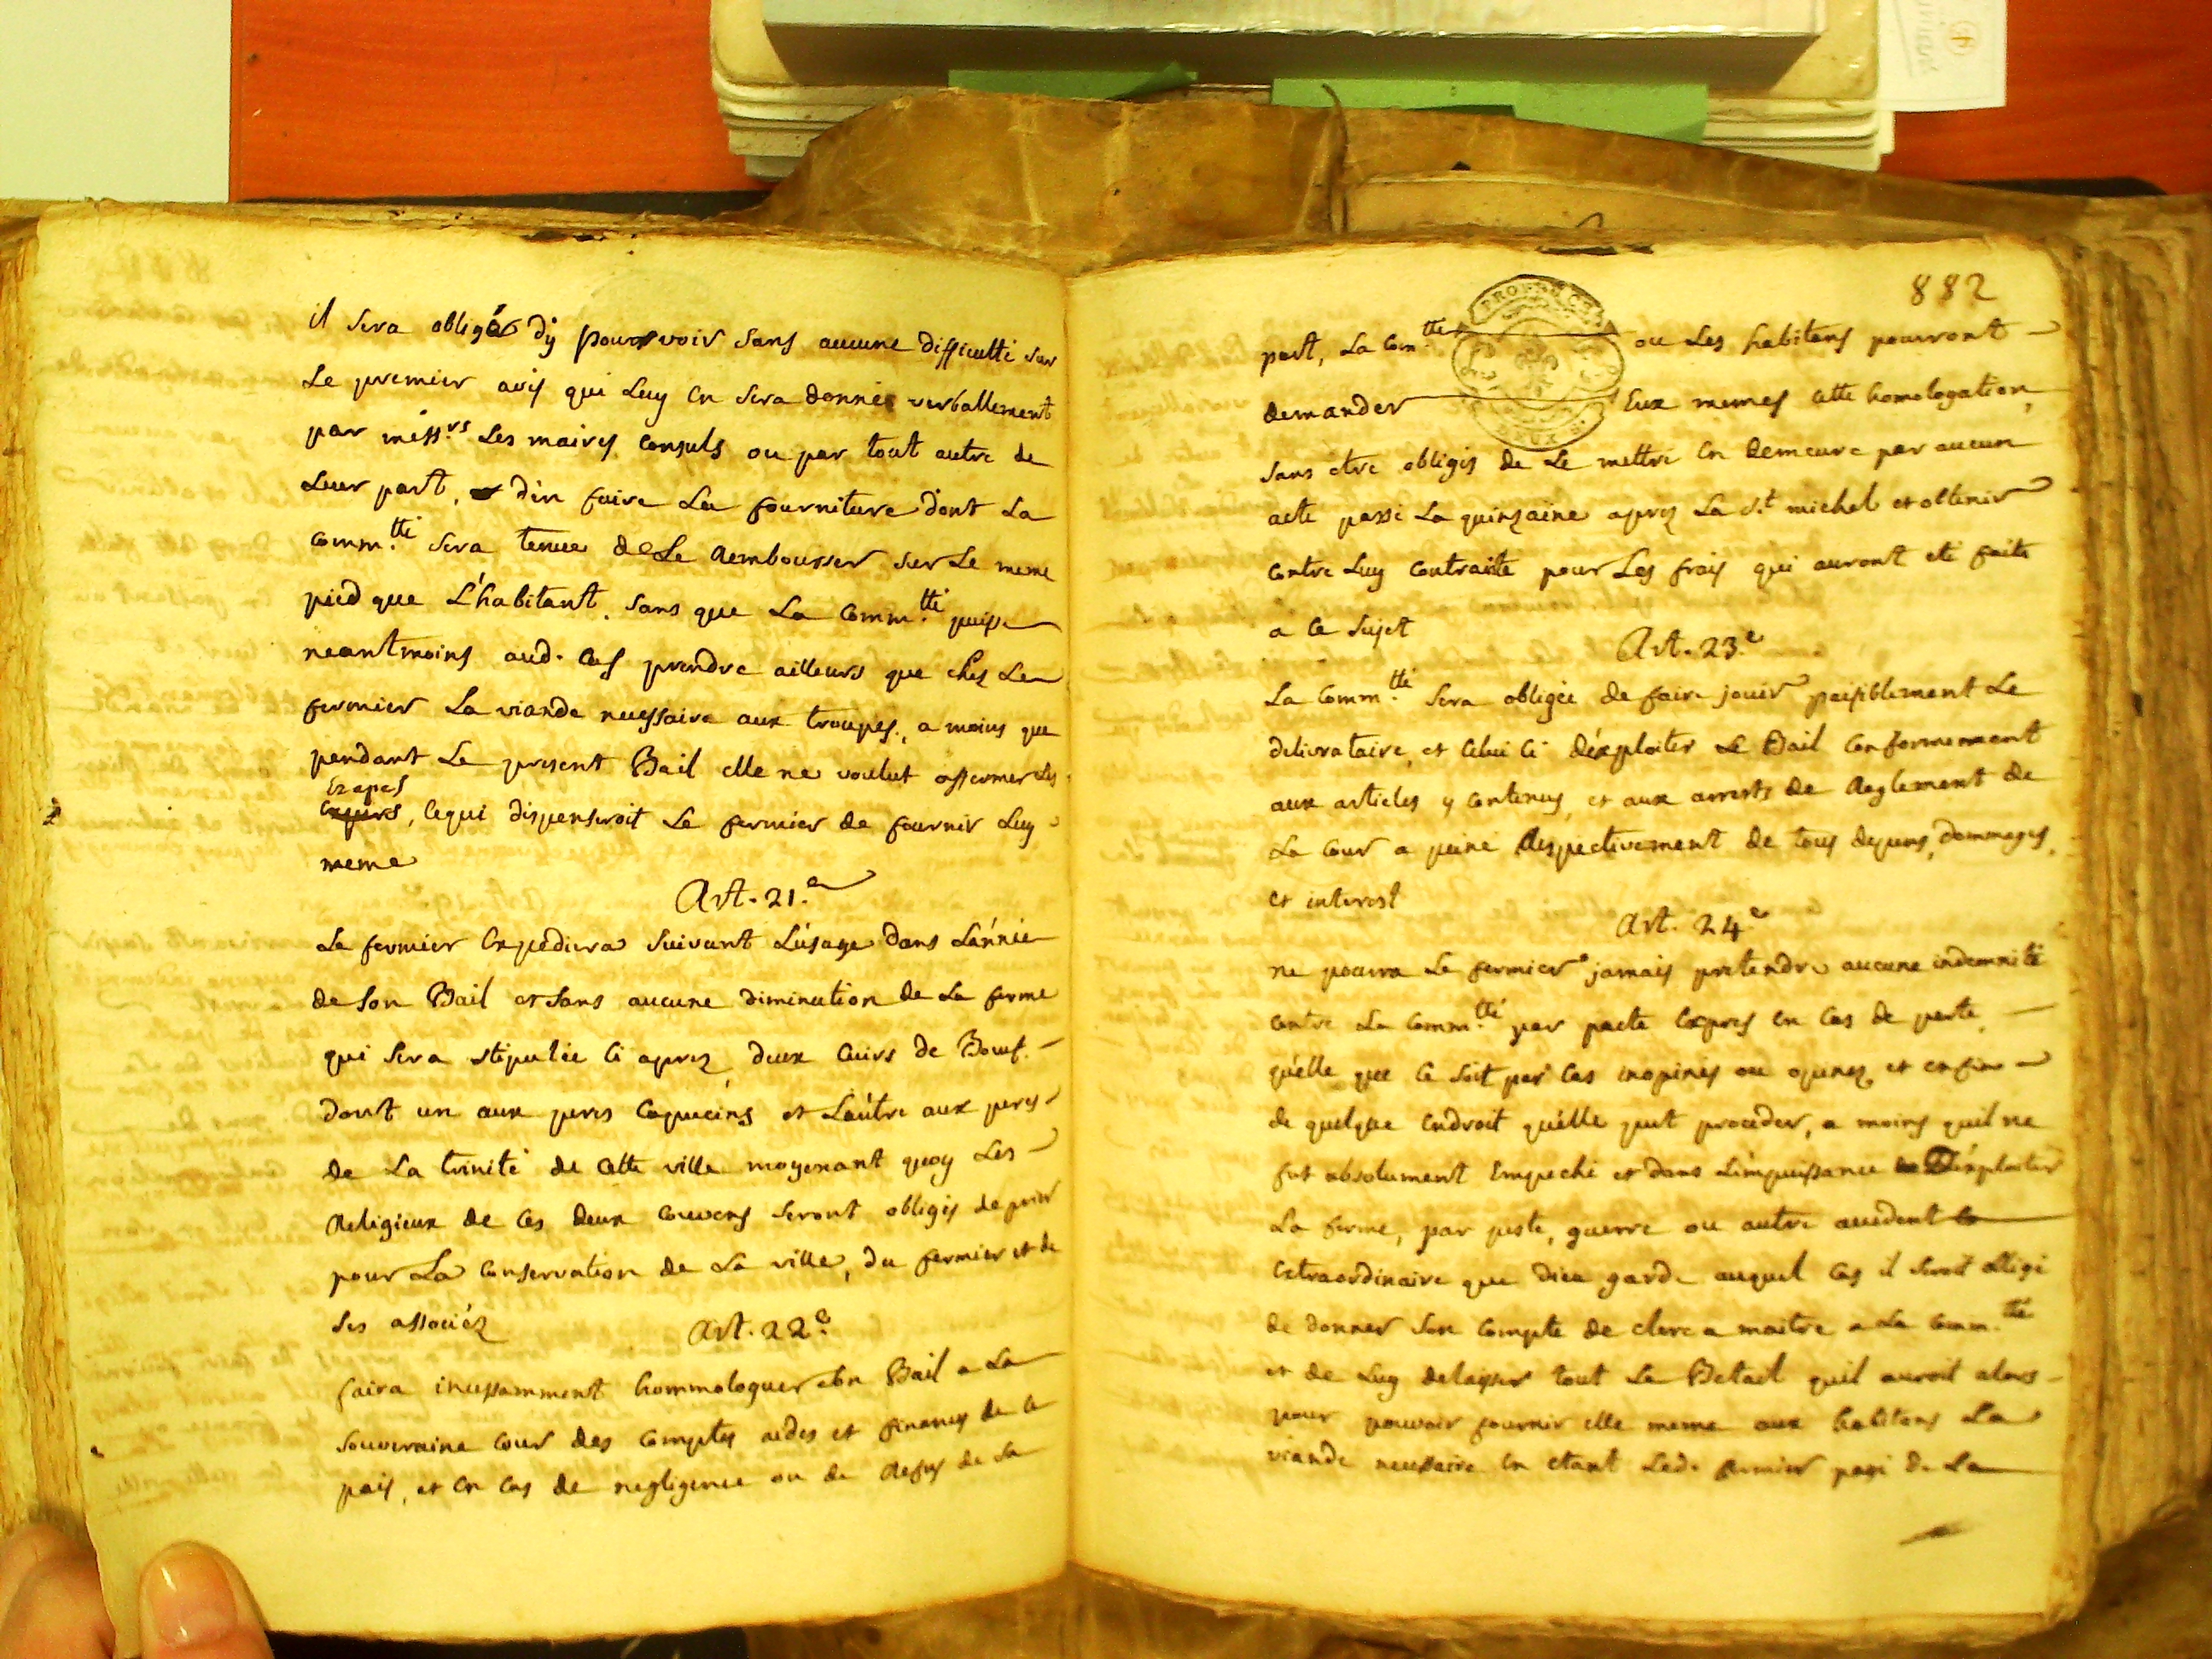 il sera obligé dy pourvoir sans aucune difficulté sur
Le premier avis qui Luy en sera donné verballement
par mess.rs Les maires Consuls ou par tout autre de
Leur part, d'en faire La fourniture dont La
Comm.tté sera tenue de Le Rembourser sur Le meme
pied que L'habitant. sans que La Comm.tté puisse
neantmoins aud. Cas prendre ailleurs que chez Le
fermier La viande necessaire aux troupes, a moins que
pendant Le present Bail elle ne voulut affermer les
Etapes
, Cequi dispenseroit Le fermier de fournir Luy
meme
Art. 21.e
Le fermier Expediera suivant L'usage dans L'année
de son Bail et sans aucune diminution de La ferme
qui sera stipulée Ci aprez, deux Cuirs de Bouf
dont un aux peres Capucins et L'autre aux peres
de La trinité de Cette ville moyenant quoy Les
Religieux de Ces deux Couvens seront obligés de prier
pour La Conservation de La ville, du fermier et de
ses associéz
Art. 22.e
faira incessamment hommologuer son Bail a La
souveraine Cour des Comptes aides et finances de Ce
pais, et en Cas de negligence ou de Refus de sa
882
part, La Com.tté ou Les habitans pourront
demander Eux memes Cette homologation,
sans etre obligés de Le mettre en demeure par aucun
acte passé La quinzaine aprez La S.t michel et obtenir
Contre Luy Contrainte pour Les frais qui auront eté faits
a Ce sujet
Art. 23.e
La Comm.tté sera obligée de faire jouir paisiblement Le
delivrataire, et Celui Ci d'éxploiter Le Bail Conformement
aux articles y Contenus, et aux arrests de Reglement de
La Cour a peine Respectivement de tous depens, dommages,
et interest
Art. 24.e
ne pourra Le fermier jamais pretendre aucune indemnité
Contre La Comm.tté par pacte Expres en Cas de perte,
qu'elle que Ce soit par Cas inopinés ou opinez, et enfin
de quelque Endroit qu'elle put proceder, a moins quil ne
fut absolument Empeché et dans L'impuissance D'éxploiter
La ferme, par peste, guerre ou autre accident
Extraordinaire que dieu garde auquel Cas il seroit obligé
de donner son Compte de clerc a maitre a La Comm.tté
et de Luy delaisser tout Le Betail quil auroit alors
pour pouvoir fournir elle meme aux habitans La
viande necessaire en etant Led. fermier payé de La